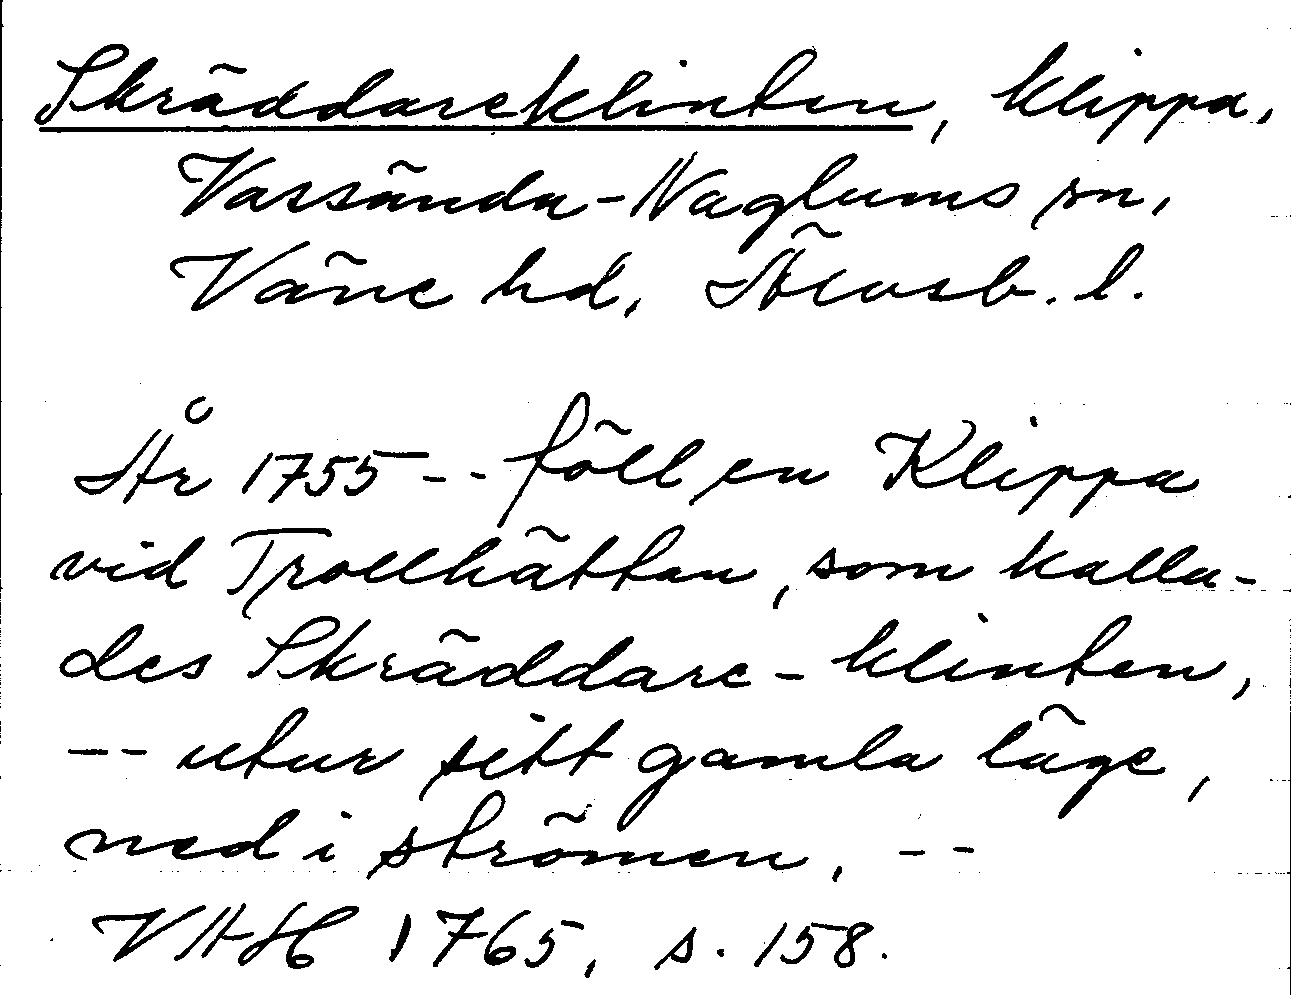 Skräddareklinten, klippa,
Vassända-Naglums sn,
Väne hd, Älvsb. l.
År 1755 -- föll en Klippa
vid Trollhättan, som kalla-
des Skräddare-klinten,
-- utur sitt gamla läge,
ned i strömen, --
VAH 1765, s. 158.